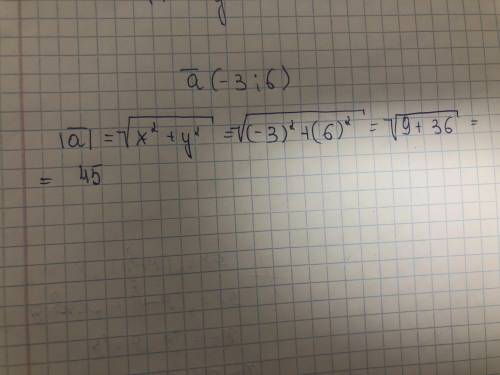 a̅ (-3 ; 6)
|a̅| = √x² + y² = √(-3)² + (6)² = √9 + 36 =
= 45